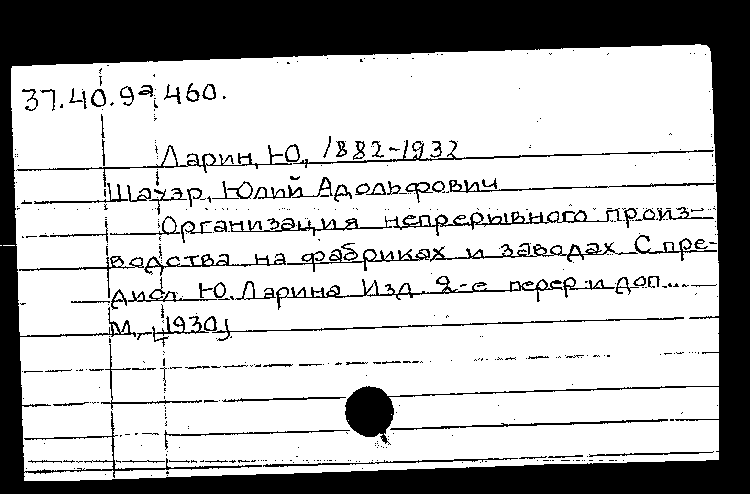 37.40.9а.460.
Ларин, Ю., 1882-1932
Шауэр, Юлий Адольфович
Организация непрерывного произ-
водства на фабриках и заводах. С пре-
дисл. Ю. Ларина Изд. 2-е перер и доп...
М., [1930]